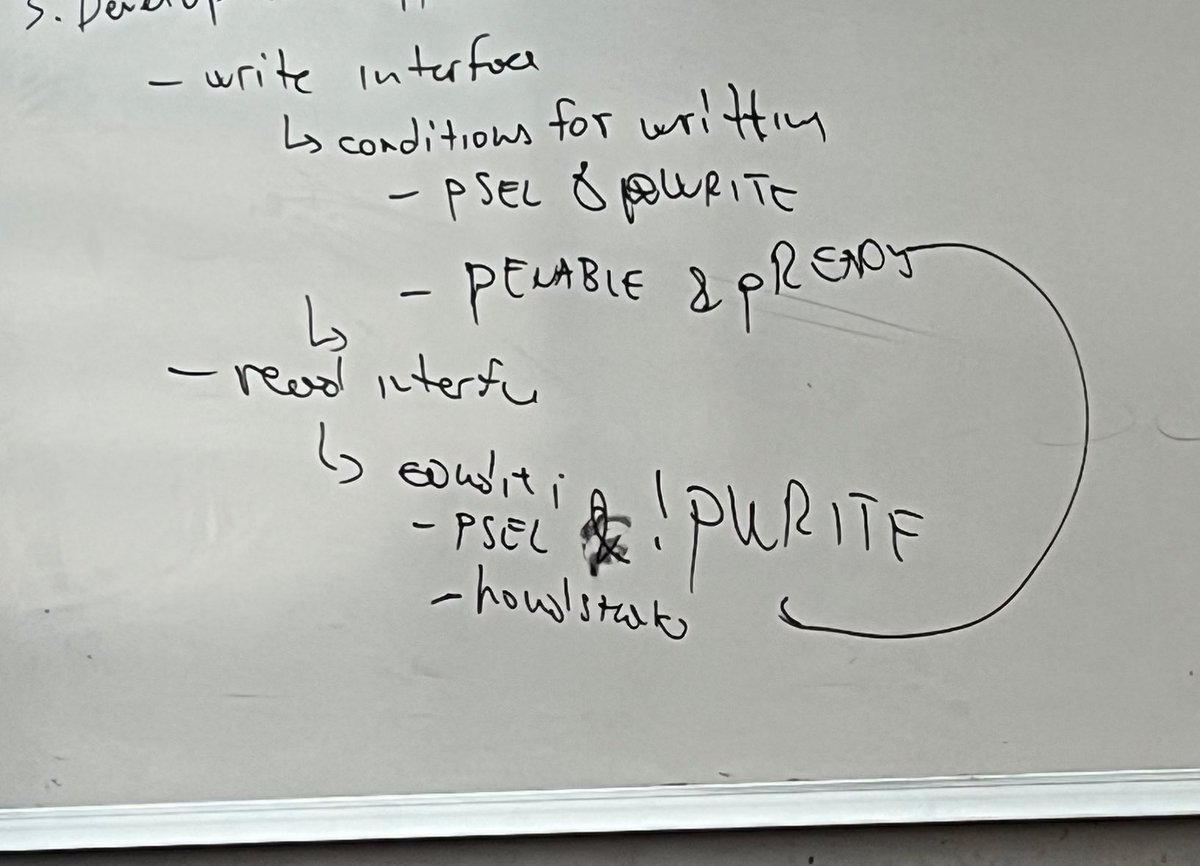 - write interface
↳ conditions for writting
- PSEL & PWRITE
- PENABLE & PREADY
↳
- read interfa
↳ conditi
- PSEL & !PWRITE
- handshake